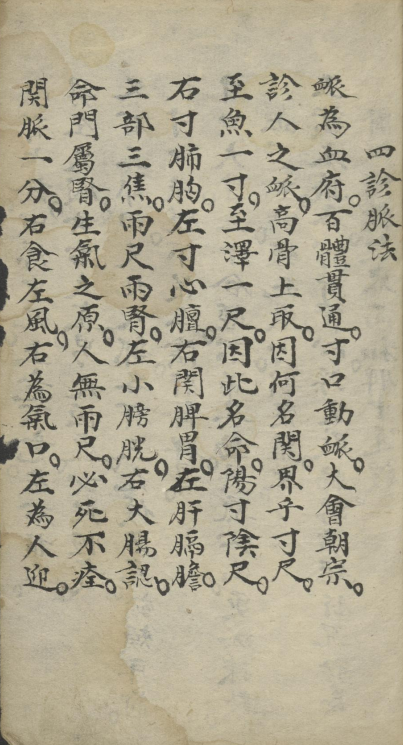 四診脈法
脈為血府。百體貫通。寸口動脈。大會朝宗。
診人之脈。高骨上取。因何名関。界乎寸尺。
至魚一寸。至澤一尺。因此名命。陽寸陰尺。
右寸肺胸。左寸心膻。右関脾胃。左肝膈膽。
三部三焦。兩尺兩腎。左小膀胱。右大腸認。
命門屬腎。生氣之原。人無兩尺。必死不痊。
関脈一分。右食左風。右為氣口。左為人迎。